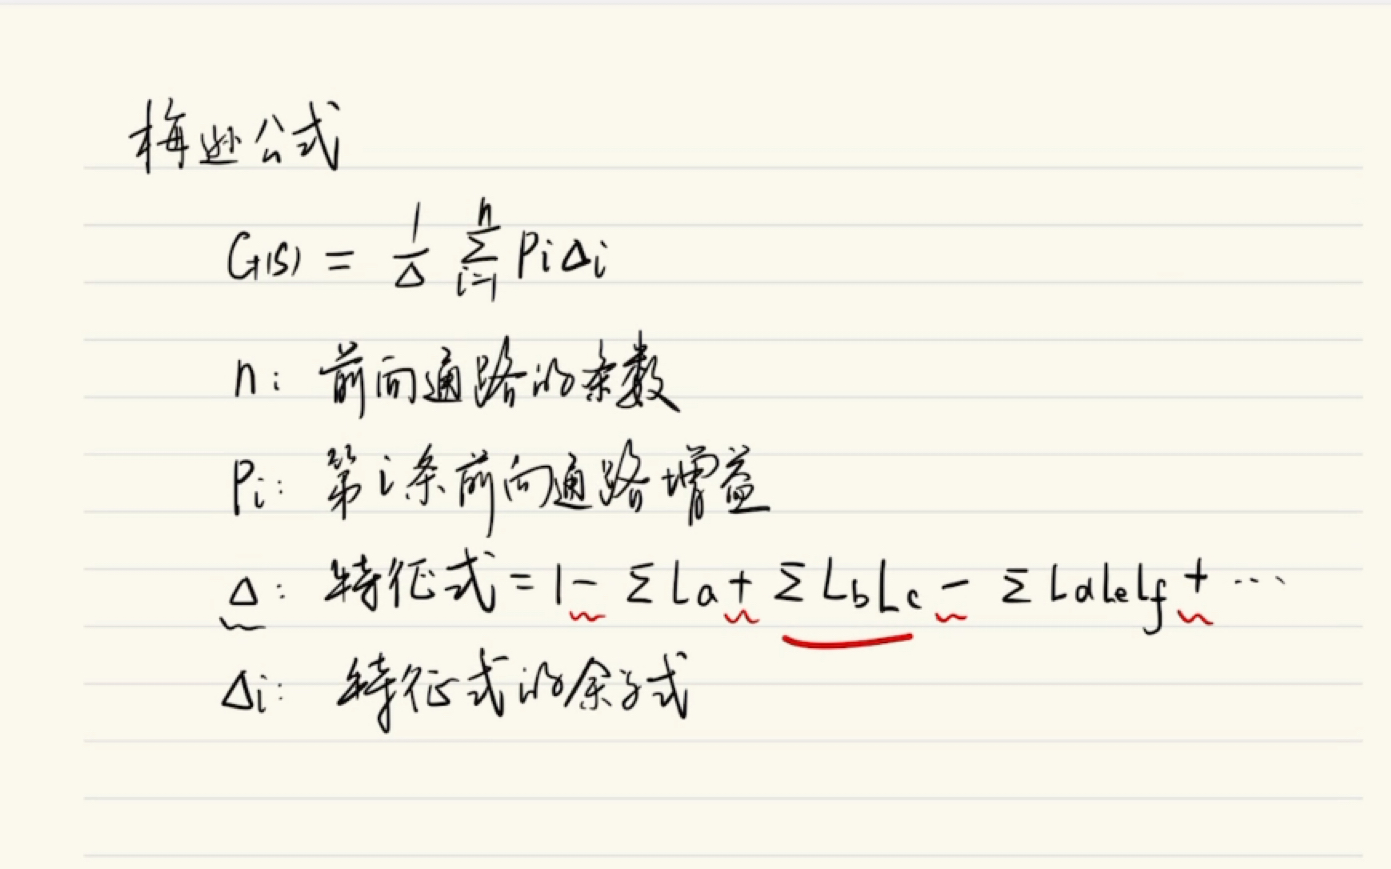 梅逊公式
G(s) = 1/Δ Σ_{i=1}^{n} Pi Δi
n: 前向通路的条数
Pi: 第i条前向通路增益
Δ: 特征式 = 1 - ΣLa + ΣLbLc - ΣLdLeLf + ...
Δi: 特征式的余子式